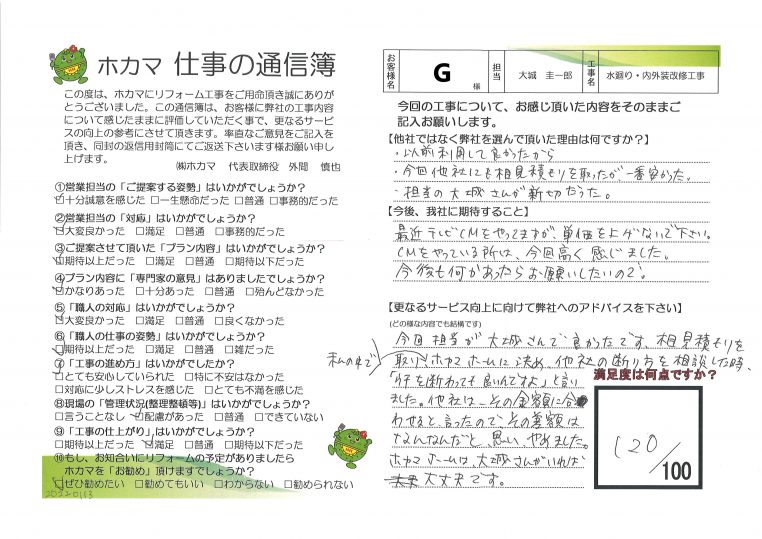 ホカマ 仕事の通信簿
この度は、ホカマにリフォーム工事をご用命頂き誠にありが
とうございました。この通信簿は、お客様に弊社の工事内容
について感じたままに評価していただく事で、更なるサービ
スの向上の参考にさせて頂きます。率直なご意見をご記入を
頂き、同封の返信用封筒にてご返送下さいます様お願い申し
上げます。
㈱ホカマ 代表取締役 外間 慎也
①営業担当の「ご提案する姿勢」はいかがでしょうか?
☑十分誠意を感じた □一生懸命だった □普通 □事務的だった
②営業担当の「対応」はいかがでしょうか?
☑大変良かった □満足 □普通 □事務的だった
③ご提案させて頂いた「プラン内容」はいかがでしょうか?
☑期待以上だった □満足 □普通 □期待以下だった
④プラン内容に「専門家の意見」はありましたでしょうか?
☑かなりあった □十分あった □普通 □殆んどなかった
⑤「職人の対応」はいかがでしょうか?
☑大変良かった □満足 □普通 □良くなかった
⑥「職人の仕事の姿勢」はいかがでしょうか?
☑期待以上だった □満足 □普通 □雑だった
⑦「工事の進め方」はいかがでしたか?
□とても安心していられた □特に不安はなかった
□対応に少しストレスを感じた □とても不満を感じた
⑧現場の「管理状況(整理整頓等)」はいかがでしょうか?
□言うことなし ☑配慮があった □普通 □できていない
⑨「工事の仕上がり」はいかがでしょうか?
□期待以上だった ☑満足 □普通 □期待以下だった
⑩もし、お知合いにリフォームの予定がありましたら
ホカマを「お勧め」頂けますでしょうか?
☑ぜひ勧めたい □勧めてもいい □わからない □勧められない
20220113
お客様名 G 様 担当 大城 圭一郎 工事名 水廻り・内外装改修工事
今回の工事について、お感じ頂いた内容をそのままご
記入お願いします。
【他社ではなく弊社を選んで頂いた理由は何ですか?】
・以前利用して良かったから
・今回他社にも相見積もりを取ったが、一番安かった。
・担当の大城さんが親切だった。
【今後、我社に期待すること】
最近テレビCMをやってますが、単価を上げないで下さい。
CMをやっている所は、今回高く感じました。
今後も何かあったらお願いしたいので。
【更なるサービス向上に向けて弊社へのアドバイスを下さい】
(どの様な内容でも結構です)
今回担当が大城さんで良かったです。相見積もりを
私の中で
取り、ホカマホームに決め、他社の断り方を相談した時、
と言い
満足度は何点ですか?
ました。他社は、その金額に合
わせると言ったので、その差額は
なんなんだと思い、やめました。
ホカマホームは、大城さんがいれば
大丈夫です。
120/100